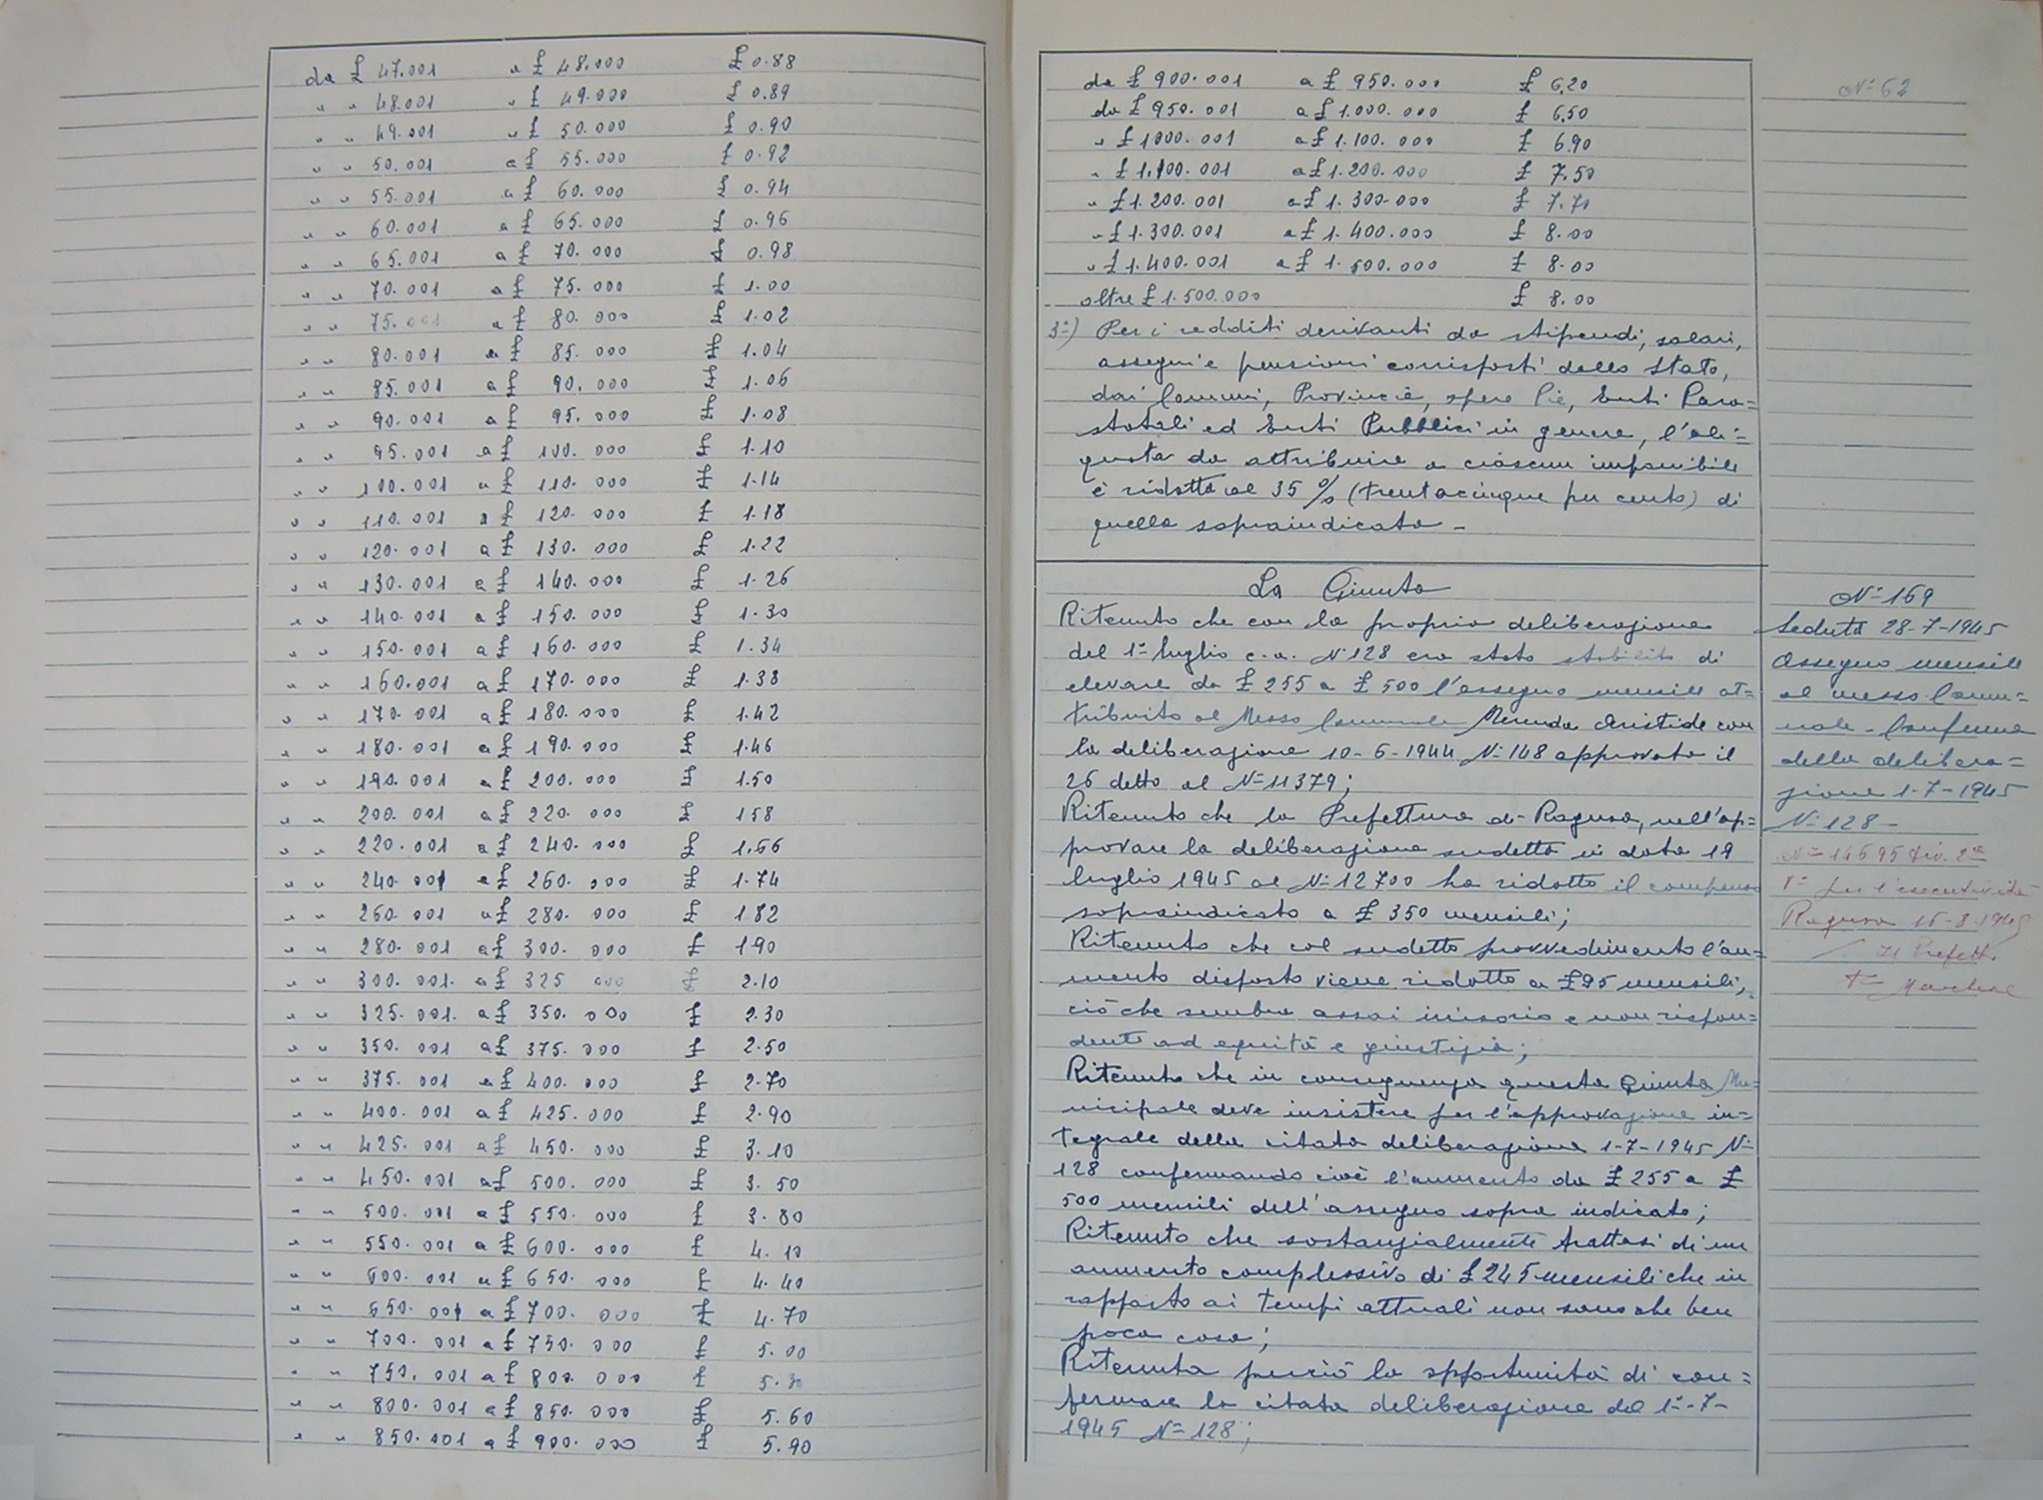 da £ 47.001 a £ 48.000 £ 0.88
" " 48.001 " £ 49.000 £ 0.89
" " 49.001 " £ 50.000 £ 0.90
" " 50.001 a £ 55.000 £ 0.92
" " 55.001 a £ 60.000 £ 0.94
" " 60.001 a £ 65.000 £ 0.96
" " 65.001 a £ 70.000 £ 0.98
" " 70.001 a £ 75.000 £ 1.00
" " 75.001 a £ 80.000 £ 1.02
" " 80.001 a £ 85.000 £ 1.04
" " 85.001 a £ 90.000 £ 1.06
" " 90.001 a £ 95.000 £ 1.08
" " 95.001 a £ 100.000 £ 1.10
" " 100.001 a £ 110.000 £ 1.14
" " 110.001 a £ 120.000 £ 1.18
" " 120.001 a £ 130.000 £ 1.22
" " 130.001 a £ 140.000 £ 1.26
" " 140.001 a £ 150.000 £ 1.30
" " 150.001 a £ 160.000 £ 1.34
" " 160.001 a £ 170.000 £ 1.38
" " 170.001 a £ 180.000 £ 1.42
" " 180.001 a £ 190.000 £ 1.46
" " 190.001 a £ 200.000 £ 1.50
" " 200.001 a £ 220.000 £ 158
" " 220.001 a £ 240.000 £ 1.66
" " 240.001 a £ 260.000 £ 1.74
" " 260.001 a £ 280.000 £ 182
" " 280.001 a £ 300.000 £ 190
" " 300.001. a £ 325 000 £ 2.10
" " 325.001. a £ 350.000 £ 2.30
" " 350.001 a £ 375.000 £ 2.50
" " 375.001 a £ 400.000 £ 2.70
" " 400.001 a £ 425.000 £ 2.90
" " 425.001 a £ 450.000 £ 3.10
" " 450.001 a £ 500.000 £ 3.50
" " 500.001 a £ 550.000 £ 3.80
" " 550.001 a £ 600.000 £ 4.10
" " 600.001 a £ 650.000 £ 4.40
" " 650.001 a £ 700.000 £ 4.70
" " 700.001 a £ 750.000 £ 5.00
" " 750.001 a £ 800.000 £ 5.30
" " 800.001 a £ 850.000 £ 5.60
" " 850.001 a £ 900.000 £ 5.90
da £ 900.001 a £ 950.000 £ 6.20
da £ 950.001 a £ 1.000.000 £ 6.50
" £ 1000.001 a £ 1.100.000 £ 6.90
" £ 1.100.001 a £ 1.200.000 £ 7.50
" £ 1.200.001 a £ 1.300.000 £ 7.70
" £ 1.300.001 a £ 1.400.000 £ 8.00
" £ 1.400.001 a £ 1.500.000 £ 8.00
oltre £ 1.500.000 £ 8.00
3°) Per i redditi derivanti da stipendi, salari,
assegni e pensioni corrisposti dallo Stato,
dai Comuni, Provincie, opere Pie, Enti Para=
statali ed Enti Pubblici in genere, l'ali=
quota da attribuire a ciascun imponibile
è ridotta al 35 % (trentacinque per cento) di
quella sopraindicata -
La Giunta
Ritenuto che con la propria deliberazione
del 1° luglio c.a. N° 128 era stato stabilito di
elevare da £ 255 a £ 500 l'assegno mensile at=
tribuito al Messo Comunale Merenda Aristide con
la deliberazione 10-6-1944 N° 148 approvata il
26 detto al N° 11379;
Ritenuto che la Prefettura di Ragusa, nell'ap=
provare la deliberazione sudetta in data 19
luglio 1945 al N° 12700 ha ridotto il compenso
sopraindicato a £ 350 mensili;
Ritenuto che col sudetto provvedimento l'au=
mento disposto viene ridotto a £ 95 mensili,
ciò che sembra assai irrisorio e non rispon=
dente ad equità e giustizia;
Ritenuto che in conseguenza questa Giunta Mu=
nicipale deve insistere per l'approvazione in=
tegrale della citata deliberazione 1-7-1945 N°
128 confermando cioè l'aumento da £ 255 a £
500 mensili dell'assegno sopra indicato;
Ritenuto che sostanzialmente trattasi di un
aumento complessivo di £ 245 mensili che in
rapporto ai tempi attuali non sono che ben
poca cosa;
Ritenuta perciò la opportunità di con=
fermare la citata deliberazione del 1°-7-
1945 N° 128;
N° 62
N° 169
Seduta 28-7-1945
Assegno mensile
al messo Comu=
nale - Conferma
della delibera=
zione 1-7-1945
N° 128 -
N° 14695 Div. 2ª
V° per l'esecutività
Ragusa 16-8-1945
Il Prefetto